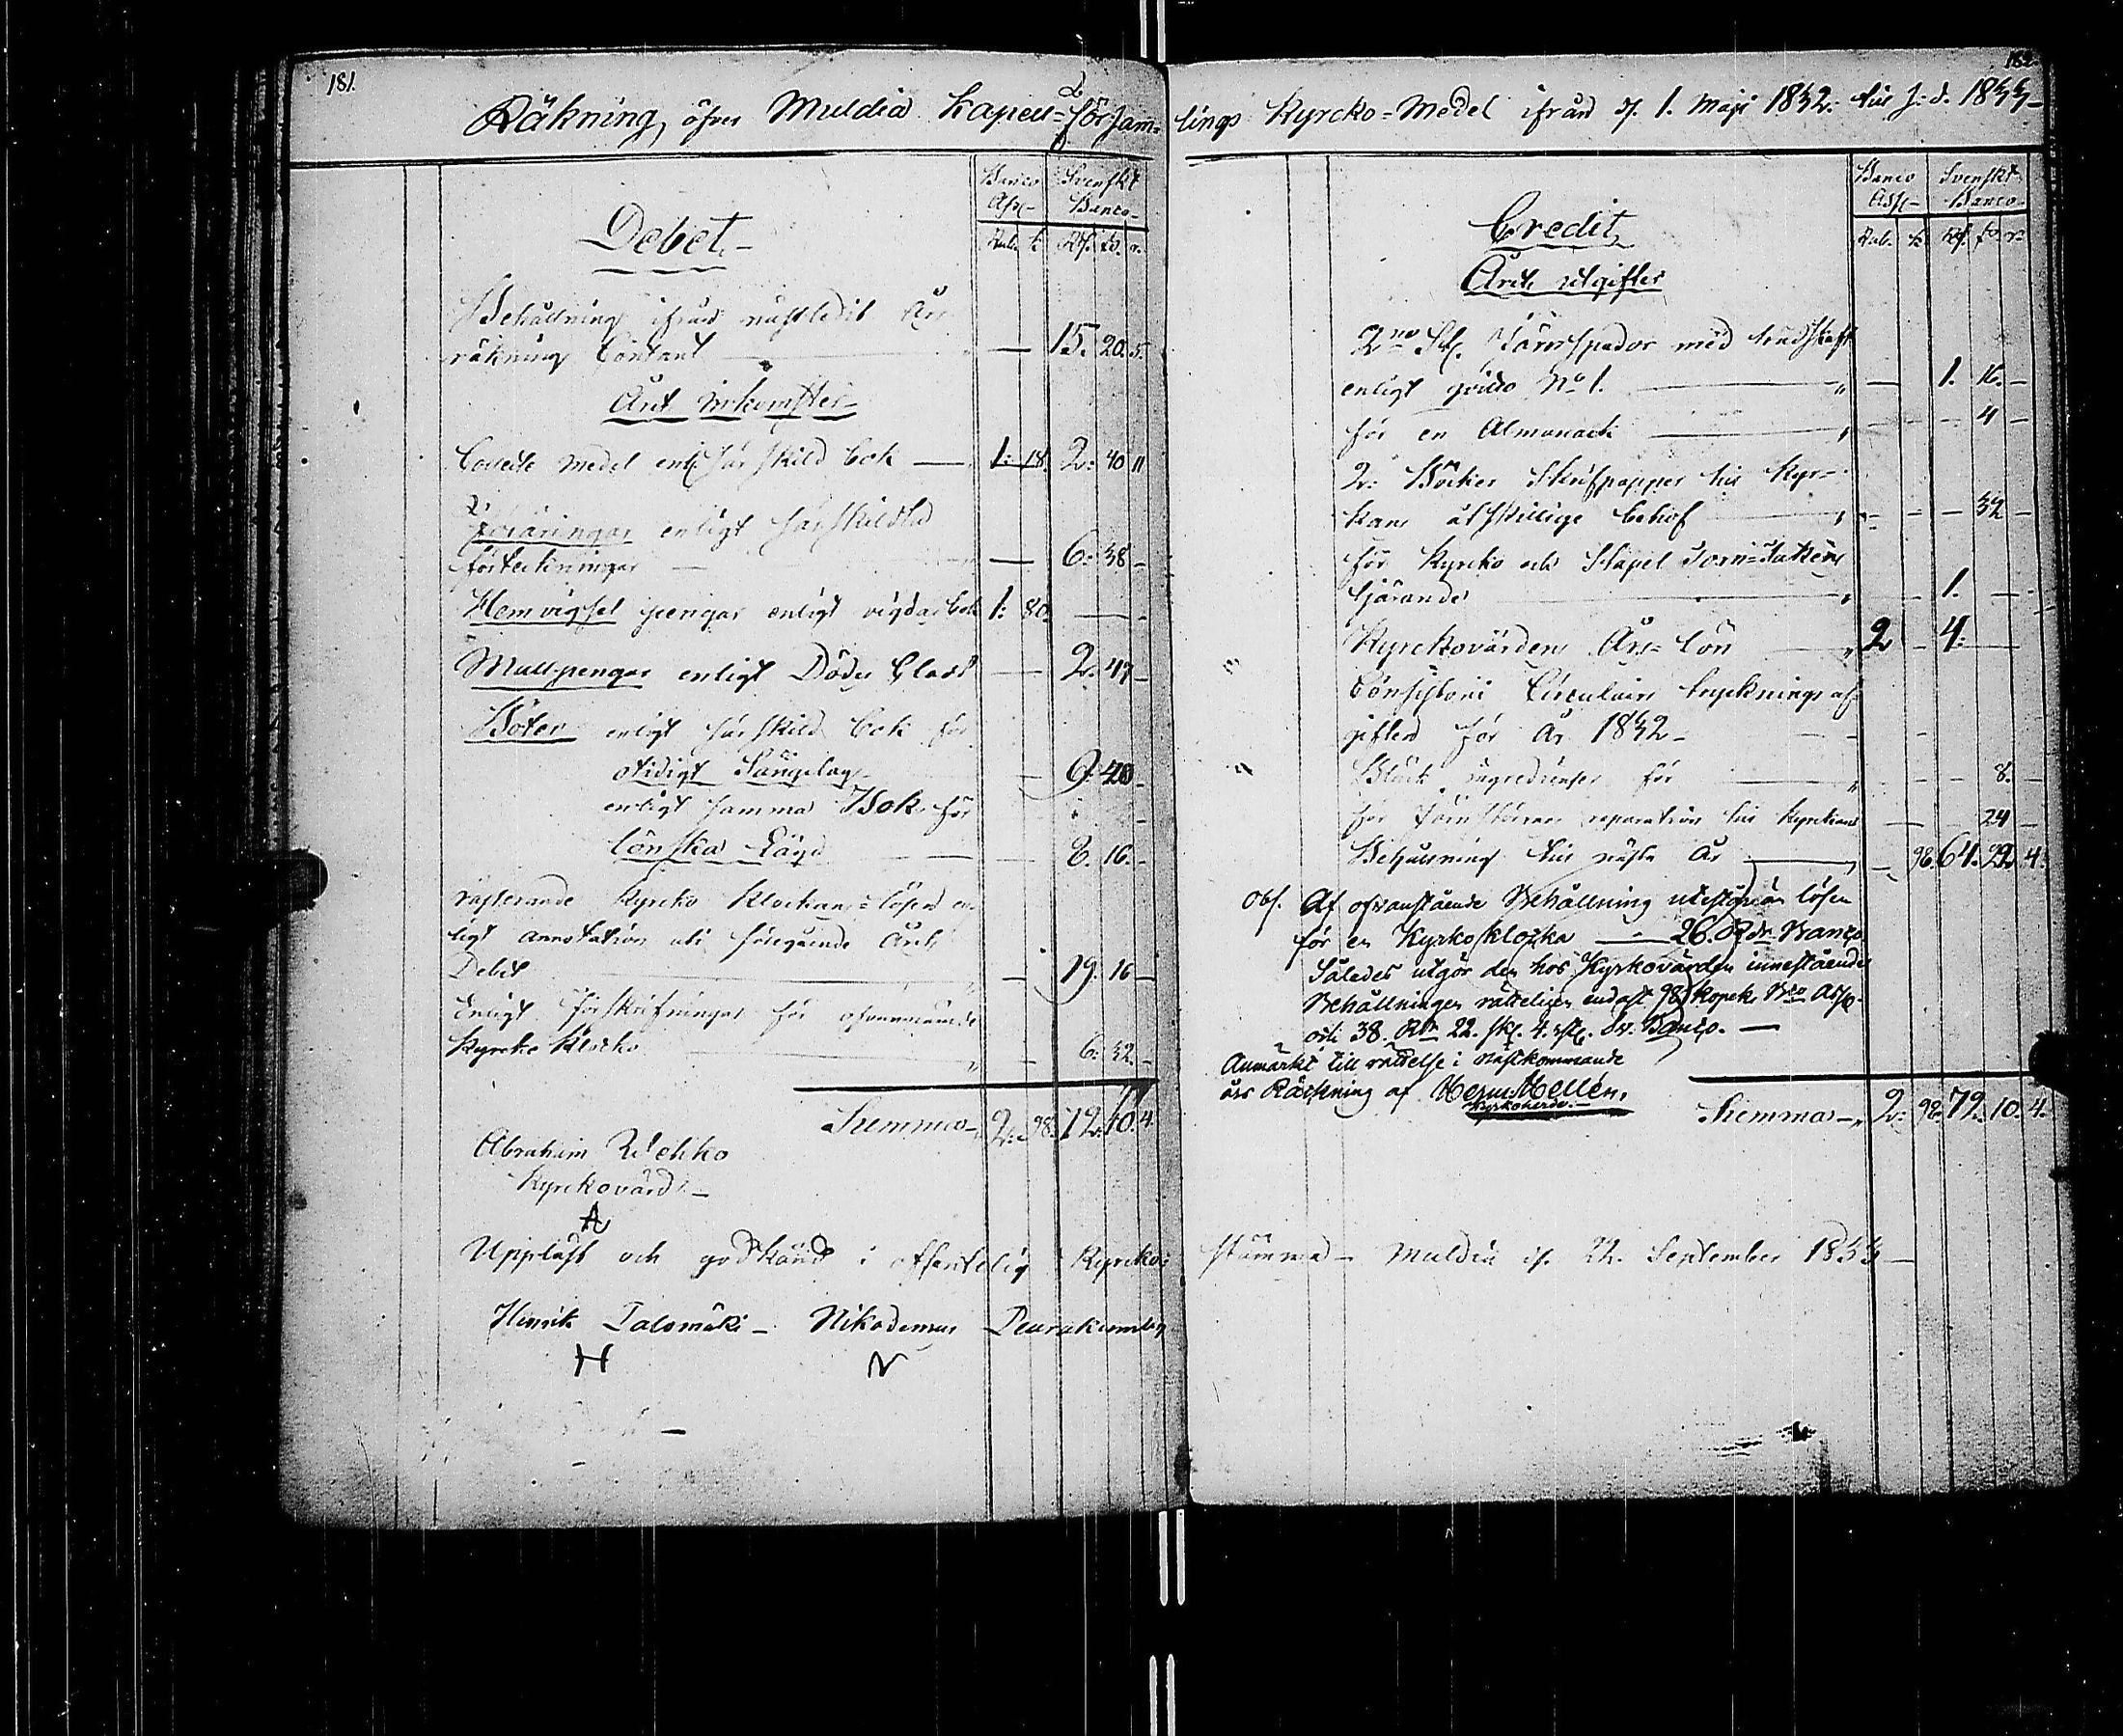 181.
Räkning, öfver Muldia Kapell=församlings Kyrcko=Medel ifrån d. 1. Maji 1832. till s. d. 1833
Banco Ass. Svenskt Banco
Debet
Rub. k. Rd. sk. r.
Behållning ifrån nästledit Års
räkning Contant — 15. 20. 5.
Års Inkomster
Collecte medel enl. särskild bok — 1: 18. 2: 40 11
Föräringar enligt särskildta
förteckningar — 6: 38 —
Hemvigsel pengar enligt vigda bok 1: 80. —
Mullpengar enligt Döda Clads — 2: 47 —
Böter enligt särskild bok för
otidigt Sängelag 9: 20 —
enligt samma Bok för
Lönska Läge — 8. 16. —
resterande Kyrcko Klockans=lösen en
ligt annotation uti föregående Års
Debet — 19. 16 —
Enligt förskrifningar för ofvannämnde
Kyrcko Klocka 6: 32. —
Summa 2: 98. 72. 10. 4.
Abraham
Kyrckovärd
A
Uppläst och godkänd i offentelig Kyrcko
Henrik Salomäki — Nikodemus Peurakumbu
H N
182.
Banco Ass. Svenskt Banco
Credit
Rub. k. Rd. sk. r.
Års utgifter
2ne St. Järnspador med träskaft
enligt qvitto No 1. — 1. 16. —
för en Almanack — 4 —
2: Böcker Skrifpapper till Kyr-
kans åtskillige behof — 32 —
för Kyrcko och Stapel Torn=Takens
tjärande — 1. —
Kyrckovärdens Års=lön 2 — 4: —
Consistorii Circulairs trycknings af
giften för År 1832 —
Bläck ingredienser för — 8. —
för Fönstrens reparation till Kyrckans — 24 —
Behållning till nästa År — 98. 64. 22. 4.
Obs. Af ofvanstående Behållning utestår lösen
för en Kyrkoklocka — 26. Rdr Banco.
Således utgör den hos Kyrkovärden innestående
Behållningen rätteligen endast 98 kopek Bco Ass.
och 38. Rdr 22. sk. 4. rst. Sv. Banco. —
Anmärkt till rättelse i nästkommande
års Räkning af Herm: Hellén,
Kyrkoherde.
Summa 2: 98. 72. 10. 4.
stämma — Muldia d. 22. September 1833 —